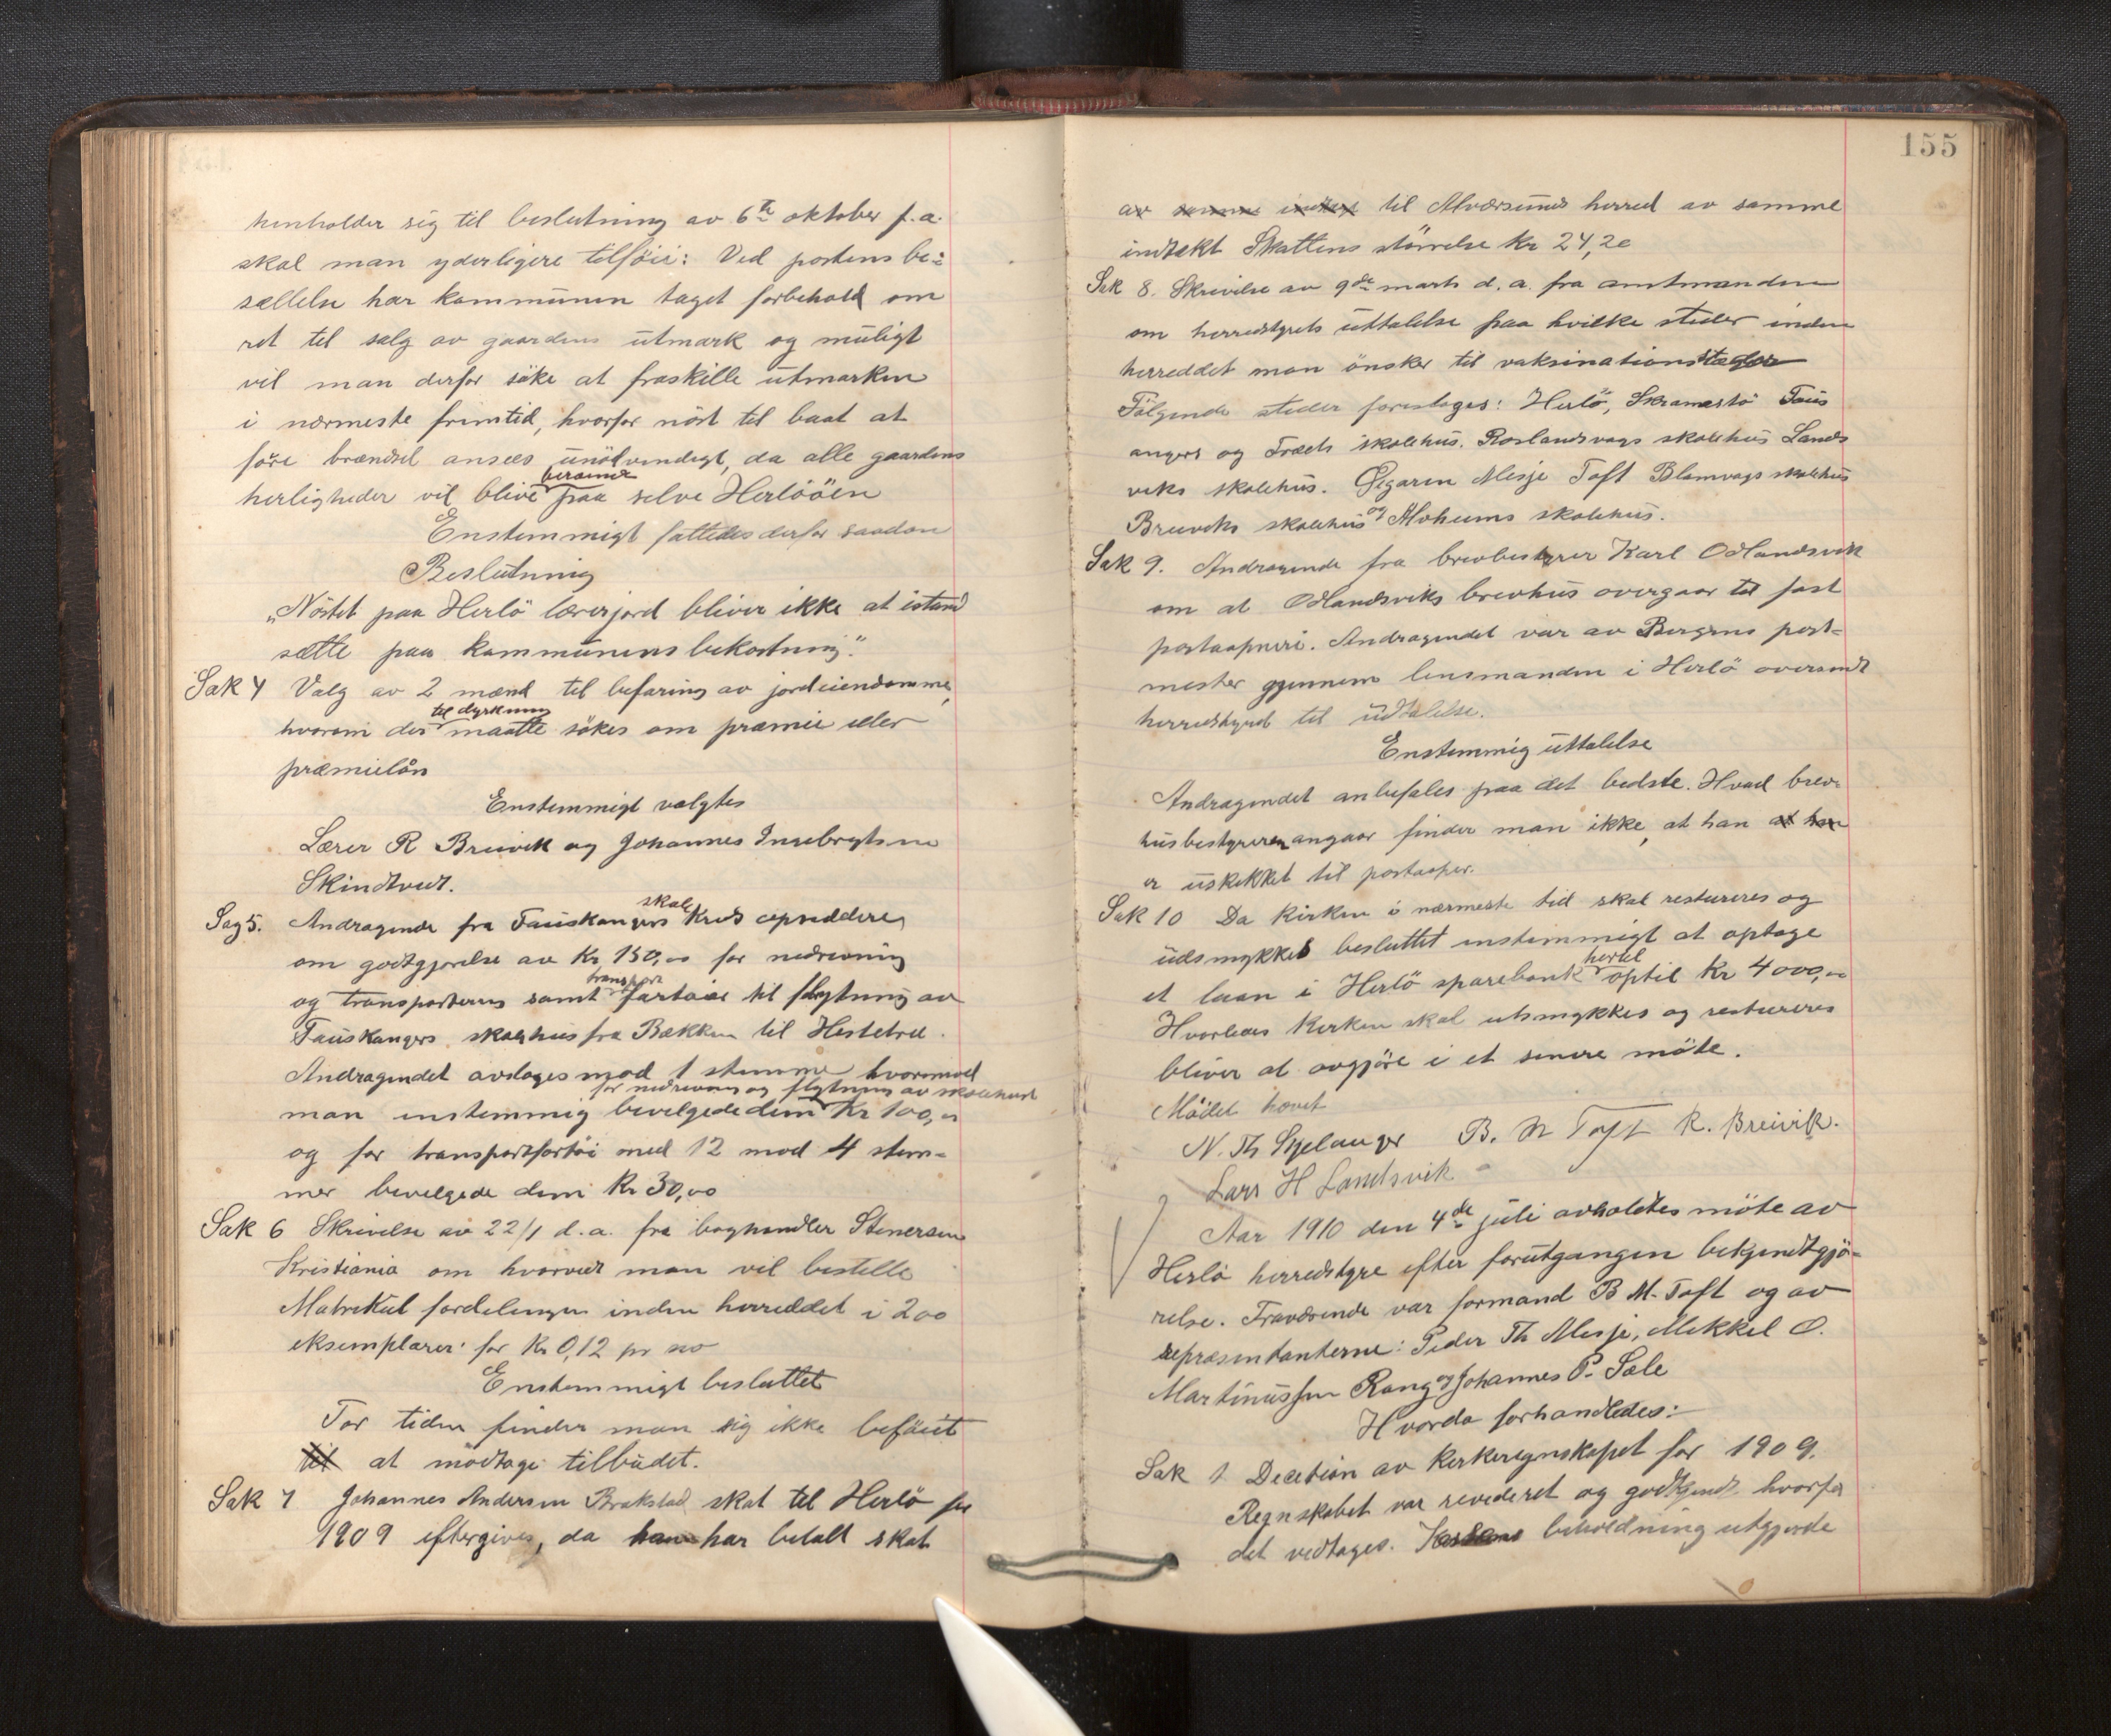 henholder sig til beslutning av 6te oktober f.a.
skal man yderligere tilföie: Ved postens be=
sættelse har kommunen taget forbehold om
ret til salg av gaardens utmark og muligt
vil man derfor söke at fraskille utmarken
i nærmeste fremtid, hvorfor nöst til baat at
före brændsel ansees unödvendigt, da alle gaardens
herligheder vil blive beroende paa selve Herlööen
Enstemmigt fattedes derfor saadan
Beslutning
„Nöstet paa Herlö lærerjord bliver ikke at istand
sætte paa kommunens bekostning."
Sak 4 Valg av 2 mænd til befaring av jordeiendomme,
hvorom der til dyrkning maatte sökes om præmie eller
præmielån
Enstemmigt valgtes
Lærer R Breivik og Johannes Ingebrigtsen
Skindtveit.
Sag 5. Andragende fra Fauskangers skole Kreds opsiddere
om godtgjørelse av Kr 150,00 for nedrivning
og transportering samt transport fartøier til flytning av
Fauskangers skolehus fra Bækken til Hestetræ.
Andragendet avsloges mod 1 stemme hvorimod
man enstemmig bevilgede dem for nedrivning og flytning av skolehuset Kr 100,00
og for transportfartöi med 12 mod 4 stem-
mer bevilgede dem Kr 30,00
Sak 6 Skrivelse av 22/1 d.a. fra boghandler Stenersen
Kristiania om hvorvidt man vil bestille
Matrikul fordelingen inden herreddet i 200
eksemplarer for Kr 0,12 pr no
Enstemmigt besluttet
For tiden finder man sig ikke beföiet
til at modtage tilbudet.
Sak 7 Johannes Andersen Brakstad skat til Herlö for
1909 eftergives, da han har betalt skat
155
av samme indtægt til Alværsunds herred av samme
indtækt Skattens störrelse Kr 24,20
Sak 8. Skrivelse av 9de marts d.a. fra amtmanden
om herredstyrets uttalelse paa hvilke steder inden
herreddet man önsker til vaksinationsteder
Fölgende steder foreslages: Herlö, Skramestö Faus
angers og Træets skolehus. Roslandsvags skolehus Lands
veks skolehus. Øygaren Misje Toft Blomvags skolehus
Breiviks skolehus og Alvheims skolehus.
Sak 9. Andragende fra brevbestyrer Karl Odlandsvik
om at Odlandsviks brevhus overgaar til fast
postaapneri. Andragendet var av Bergens post=
mester gjennem lensmanden i Herlö oversendt
herredstyret til udtalelse.
Enstemmig uttalelse
Andragendet anbefales paa det bedste. Hvad brev
husbestyreren angaar finder man ikke, at han at han
er uskikket til postaaper.
Sak 10 Da Kirken i nærmeste tid skal restureres og
udsmykkes besluttet enstemmigt at optage
et laan i Herlö sparebank hertil optil Kr 4000,00
Hvorledes Kirken skal utsmykkes og restureres
bliver at avgjöre i et senere möte.
Mödet hævet
N. Th Sjelanger B. M Toft R. Breivik.
Lars H Landsvik
Aar 1910 den 4de juli avholdtes möte av
Herlö herredstyre efter forutgangen bekjendtgjö-
relse. Fraværende var formand B M. Toft og av
repræsentanterne: Peder Th Misje, Mikkel O.
Martinussen Rong og Johannes P. Sæle
Hvorda forhandledes:
Sak 1 Decetion av Kirkeregnskapet for 1909.
Regnskabet var revideret og godkjendt hvorfor
det vedtages. Kassens beholdning utgjorde